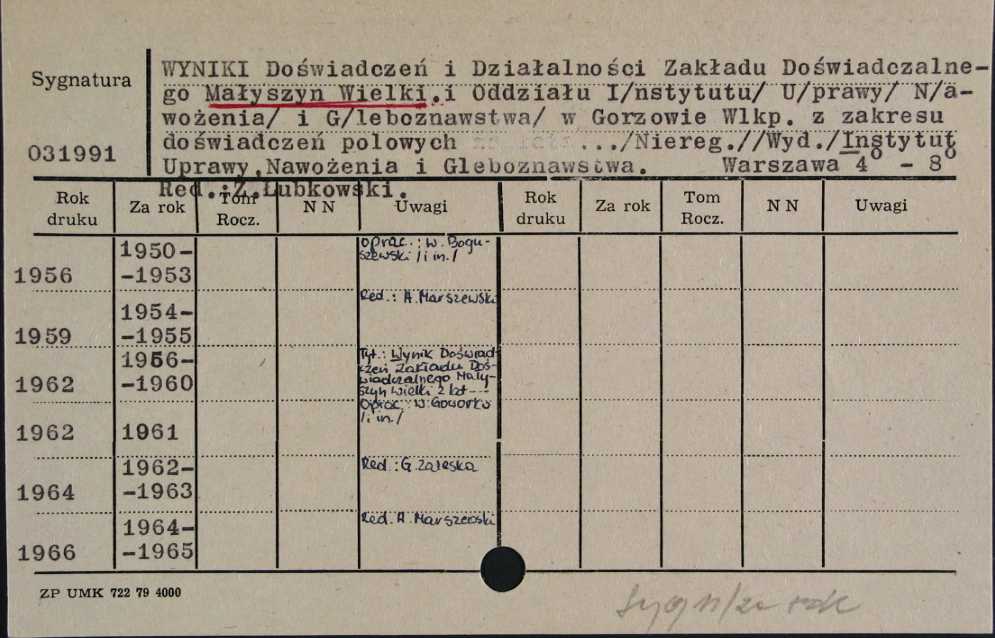 Sygnatura
031991
WYNIKI Doświadczeń i Działalności Zakładu Doświadczalne-
go Małyszyn Wielki.i Oddziału I/nstytutu/ U/prawy/ N/a-
wożenia/ i G/leboznawstwa/ w Gorzowie Wlkp. z zakresu
doświadczeń polowych .../Niereg.//Wyd./Instytut
Uprawy,Nawożenia i Gleboznawstwa. Warszawa 4° - 8°
Red.:Z.Łubkowski.
Rok druku Za rok Tom Rocz. N N Uwagi Rok druku Za rok Tom Rocz. N N Uwagi
1956 1950-
-1953 Oprac.: W. Bogu-
szewski /i in./
1959 1954-
-1955 Red.: A. Marszewski
1962 1956-
-1960 Tyt.: Wynik Doświad-
czeń Zakładu Doś-
wiadczalnego Mały-
szyn Wielki z lat ---
Oprac. W. Goworko
/i in./
1962 1961
1964 1962-
-1963 Red.: G. Zaleska
1966 1964-
-1965 Red. A. Marszewski
ZP UMK 722 79 4000